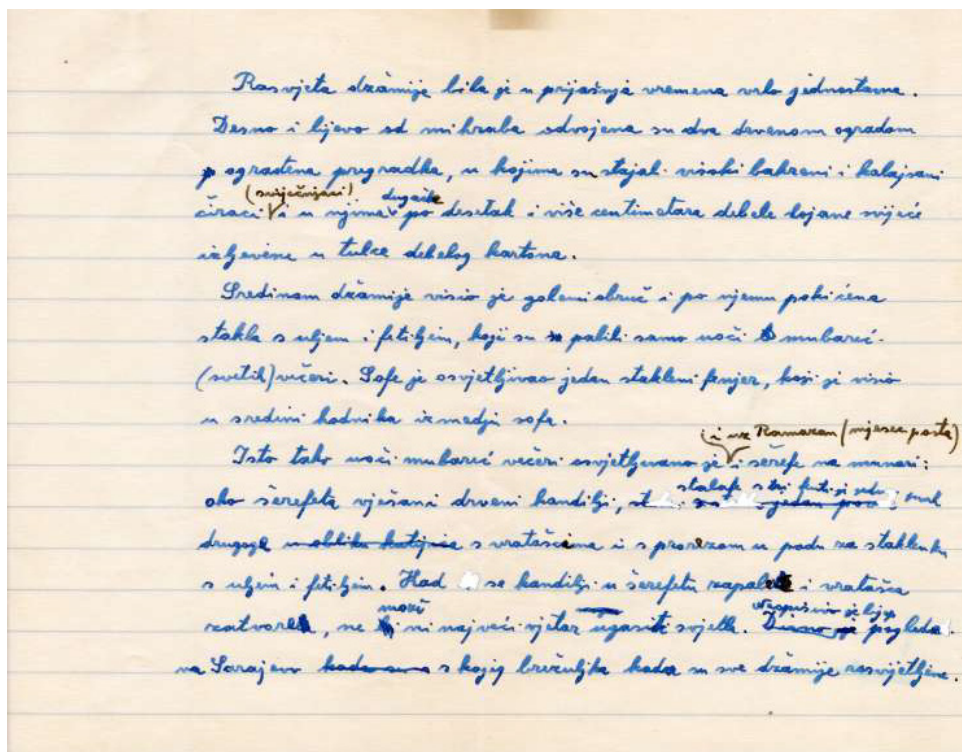 Rasvjeta džamije bila je u prijašnja vremena vrlo jednostavna.
Desno i lijevo od mihraba odvojena su dva drvenom ogradom
ograđena pregradka, u kojima su stajali visoki bakreni i kalajsani
(sviječnjaci) dugačke
čiraci i u njima po desetak i više centimetara debele lojane svijeće
izljevene u tulce debelog kartona.
Sredinom džamije visio je golemi obruč i po njemu pokićena
stakla s uljem i fetiljem, koji su palili samo uoči mubareć
(svetih) večeri. Sofe je osvjetljivao jedan stakleni fenjer, koji je visio
u sredini hodnika između sofa.
(i uz Ramazan (mjesec posta)
Isto tako uoči mubareć večeri osvjetljivano je i šerefe na munari:
oko šerefeta vješani drveni kandilji,
drugoga u obliku kutijica s vratašcima i s prorezom u podu za staklenku
s uljem i fetiljem. Kad se kandilji u šerefetu zapale i vratašca
može
zatvore, ne ni najveći vjetar ugasiti svjetla. Divno je pogledati
na Sarajevo s kojeg brežuljka kada su sve džamije rasvijetljene.